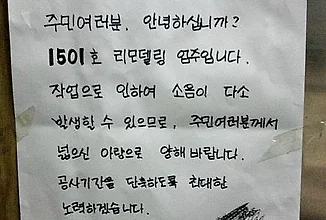 주민여러분, 안녕하십니까?
1501호 리모델링 연주입니다.
작업으로 인하여 소음이 다소
발생할 수 있으므로, 주민여러분께서
넓으신 아량으로 양해 바랍니다.
공사기간을 단축하도록 최대한
노력하겠습니다.